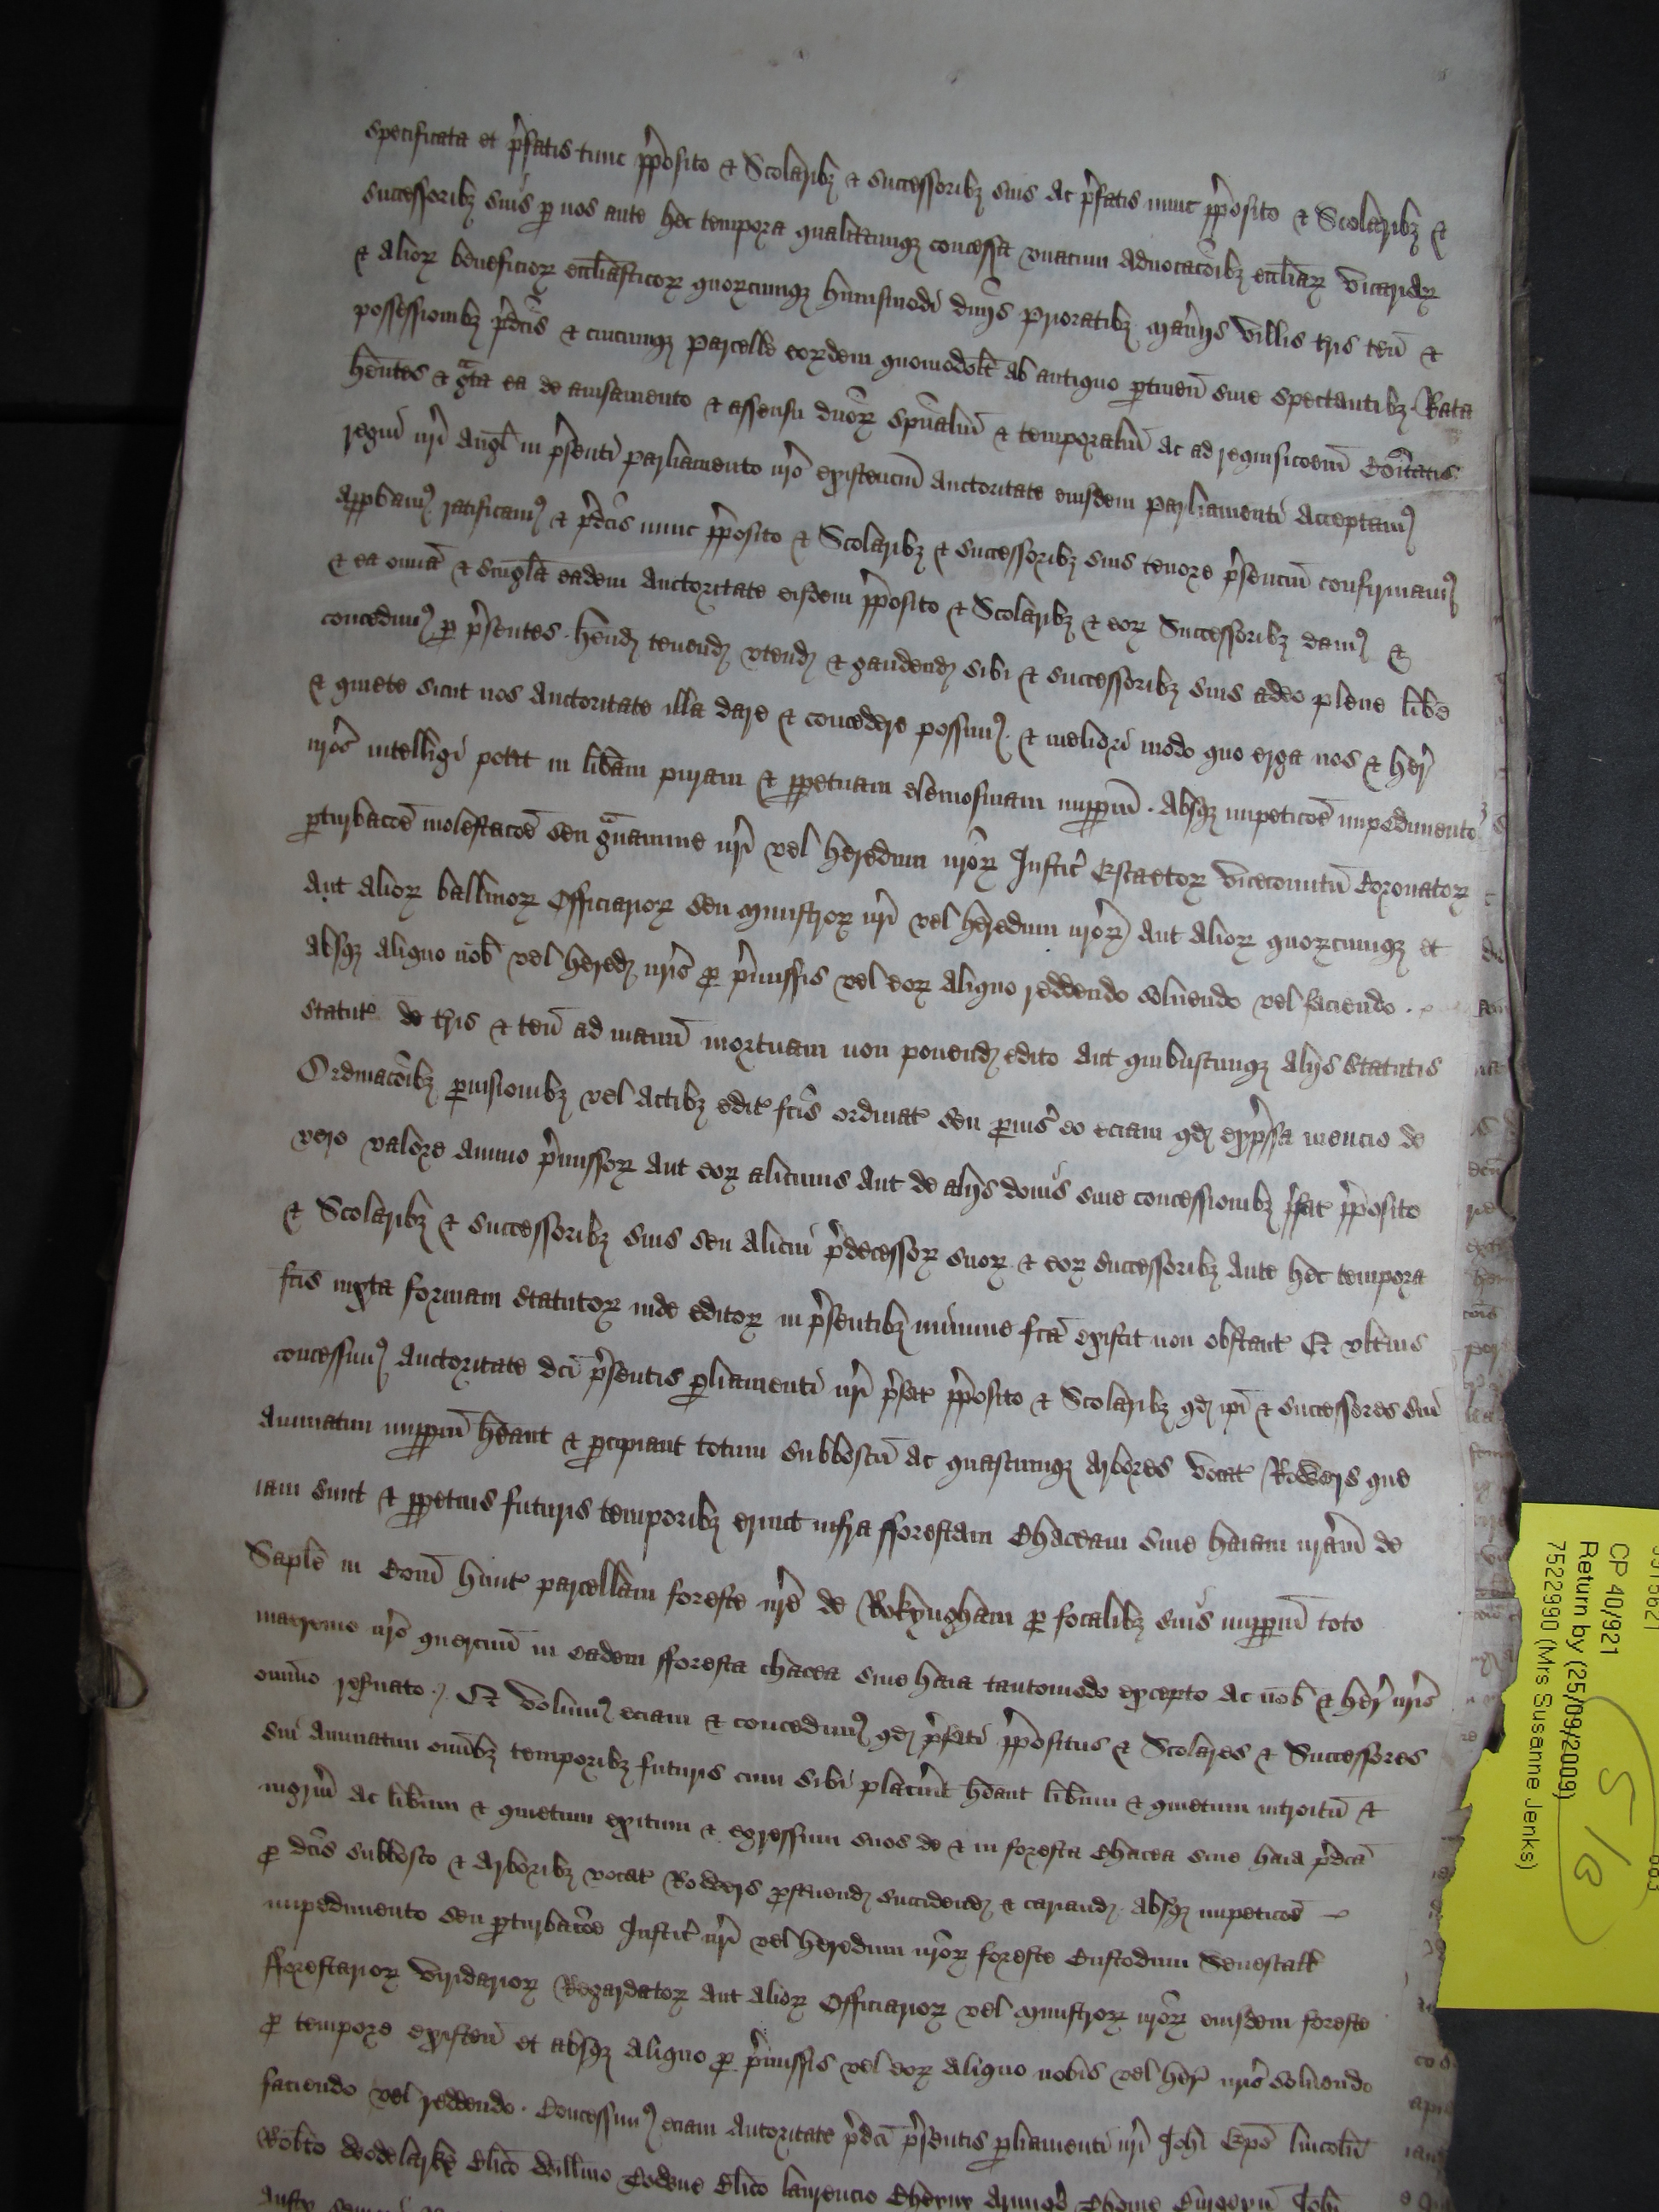 specificata et p'fatis tunc p'posito & Scolaribz & successoribz suis ac p'fatis nunc p'posito & Scolaribz &
successoribz suis p nos ante hec tempora qualitercumqz concessa vnacum aduocacōibz eccliar vicariar
& alior beneficior eccliasticor quorcumqz huiusmodi dnijs prioratibz man'ijs villis tris teñ &
possessionibz p'dcis & cuicumqz parcelle eordem quomodolt ab antiquo ptineñ siue spectantibz Rata
hentes & gta ea de auisamento & assensu dnor spualiū & temporaliū ac ad requisicoem Coitatis
regni nri Angl in p'senti parliamento nro existenciū auctoritate eiusdem parliamenti acceptamꝰ
approbamꝰ ratificamꝰ & p'dcis nunc p'posito & Scolaribz & successoribz suis tenore p'senciū confirmamꝰ
& ea omia & singla eadem auctoritate eisdem p'posito & Scolaribz & eor Successoribz damꝰ &
concedimꝰ p p'sentes hend tenend vtend & gaudend sibi & successoribz suis adeo plene libe
& quiete sicut nos auctoritate illa dare & concedere possumꝰ & meliori modo quo erga nos & her'
nros intelligi potit in libam puram & ppetuam elemosinam imppm . Absqz impeticōe impedimento
pturbacōe molestacōe seu guamine nri vel heredum nror Justic' Escaetor vicecomitū Coronator
aut alior balliuor Officiarior seu ministror nri vel heredum nror aut alior quorcumqz et
absqz aliquo nob vel hered nris p p'missis vel eor aliquo reddendo soluendo vel faciendo .
statut' de tris & teñ ad manū mortuam non ponend edito aut quibuscumqz alijs statutis
Ordinacōibz prouisionibz vel actibz edit' fcis ordinat' seu prouis' eo eciam qd exp'ssa mencio de
vero valore annuo p'missor aut eor alicuius aut de alijs donis siue concessionibz p'fat' p'posito
& Scolaribz & successoribz suis seu alicui p'decessor suor & eor successoribz ante hec tempora
fcis iuxta formam statutor inde editor in p'sentibz minime fca existit non obstant' Et vlterius
concessimꝰ auctoritate dci p'sentis pliamenti nri p'fat' p'posito & Scolaribz qd ipi & successores sui
annuatim imppm heant & pcipiant totum subboscū ac quascumqz arbores vocat' Rowers que
iam sunt & ppetuis futuris temporibz erunt infra fforestam Chaceam siue haiam nram de
Saple in Com Hunt' parcellam foreste nre de Rokyngham p focalibz suis imppm toto
maeremio nro quercuū in eadem fforesta chacea siue haia tantomodo excepto ac nob & her' nris
omnio reseruato . Et volumꝰ eciam & concedimꝰ qd p'fati p'positus & Scolares & Successores
sui annuatim omibz temporibz futuris cum sibi placu'it heant libum & quietum introitū &
ingrm ac libum & quietum exitum & egressum suos de & in foresta Chacea siue haia p'dca
p dcis subbosco & arboribz vocat' Rowers psternend succidend & cariand absqz impeticōe
impedimento seu pturbacōe Justic' nri vel heredum nror foreste Custodum Senescall
fforestarior viridarior Regardator aut alior Officiarior vel ministror nror eiusdem foreste
p tempore existeñ et absqz aliquo p p'missis vel eor aliquo nobis vel her' nris soluendo
faciendo vel reddendo . Concessimꝰ eciam Autoritate p'dci p'sentis pliamenti nri Johi Epo lincolñ
Robto Wodelarke Clico Willmo Towne Clico laurencio
CP 40/921
Return by (25/09/2009)
7522990 (Mrs Susanne Jenks)
5/B